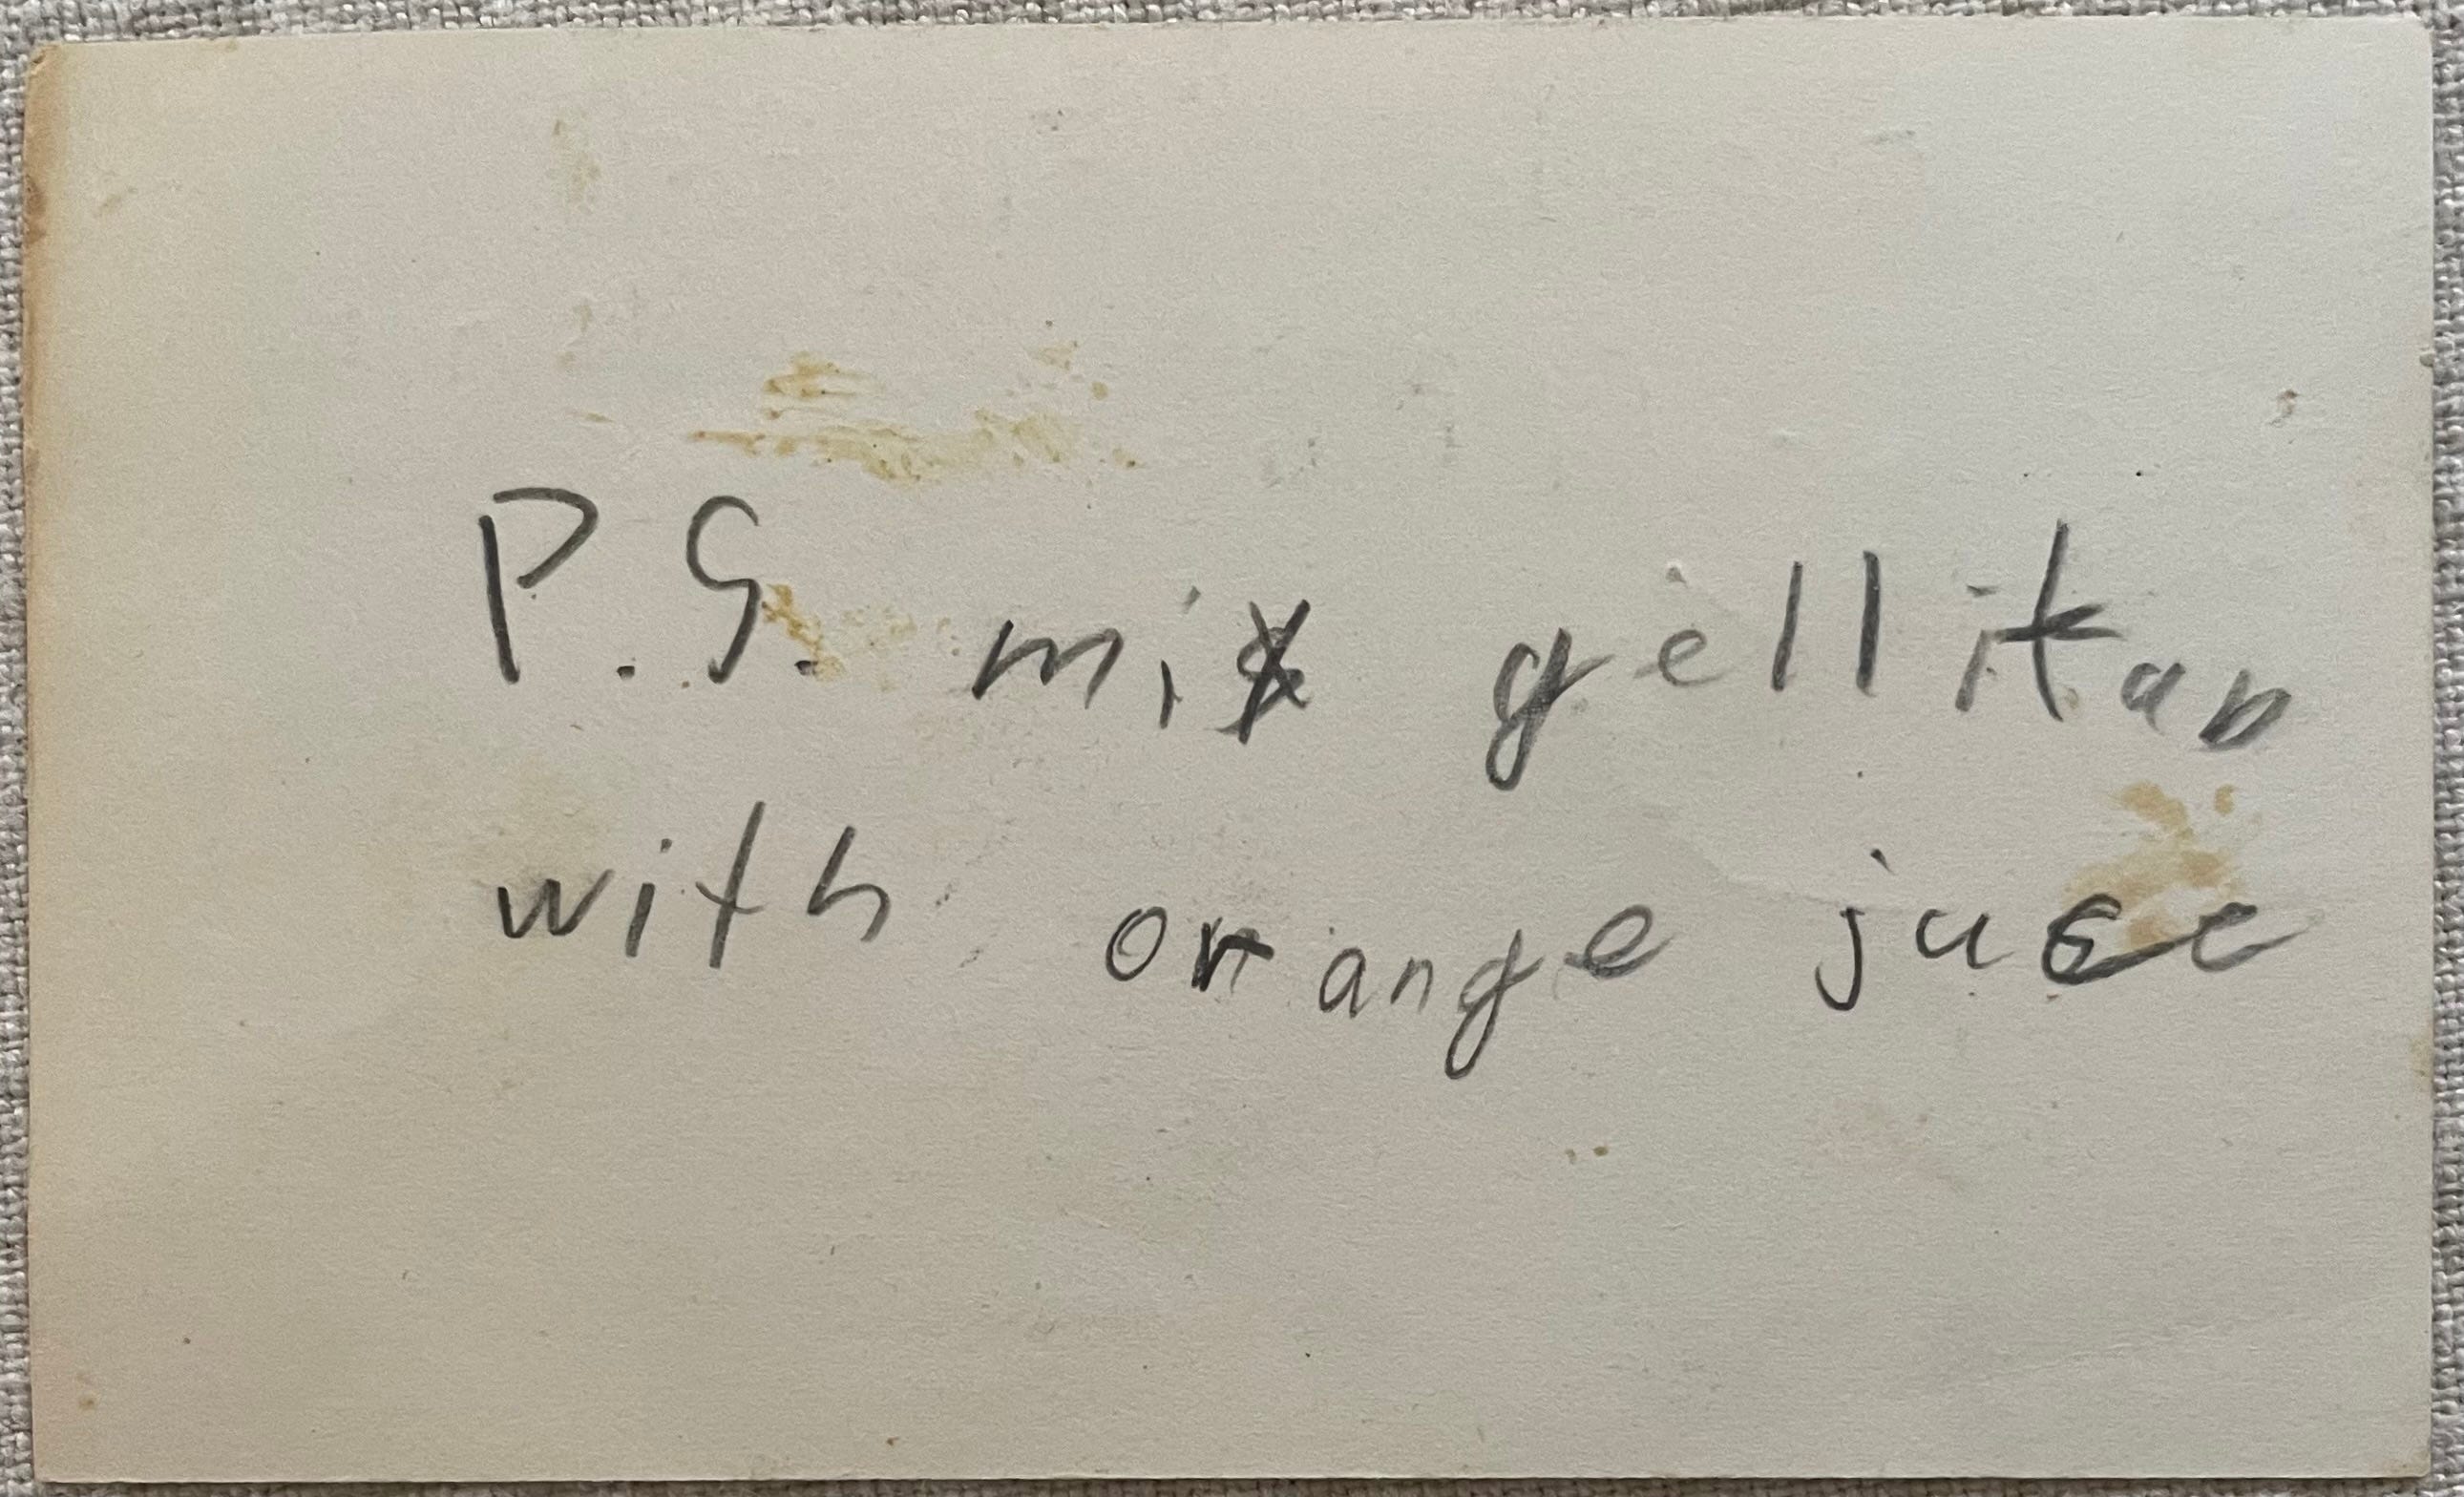 P.S. mix gellitan
with orange juce